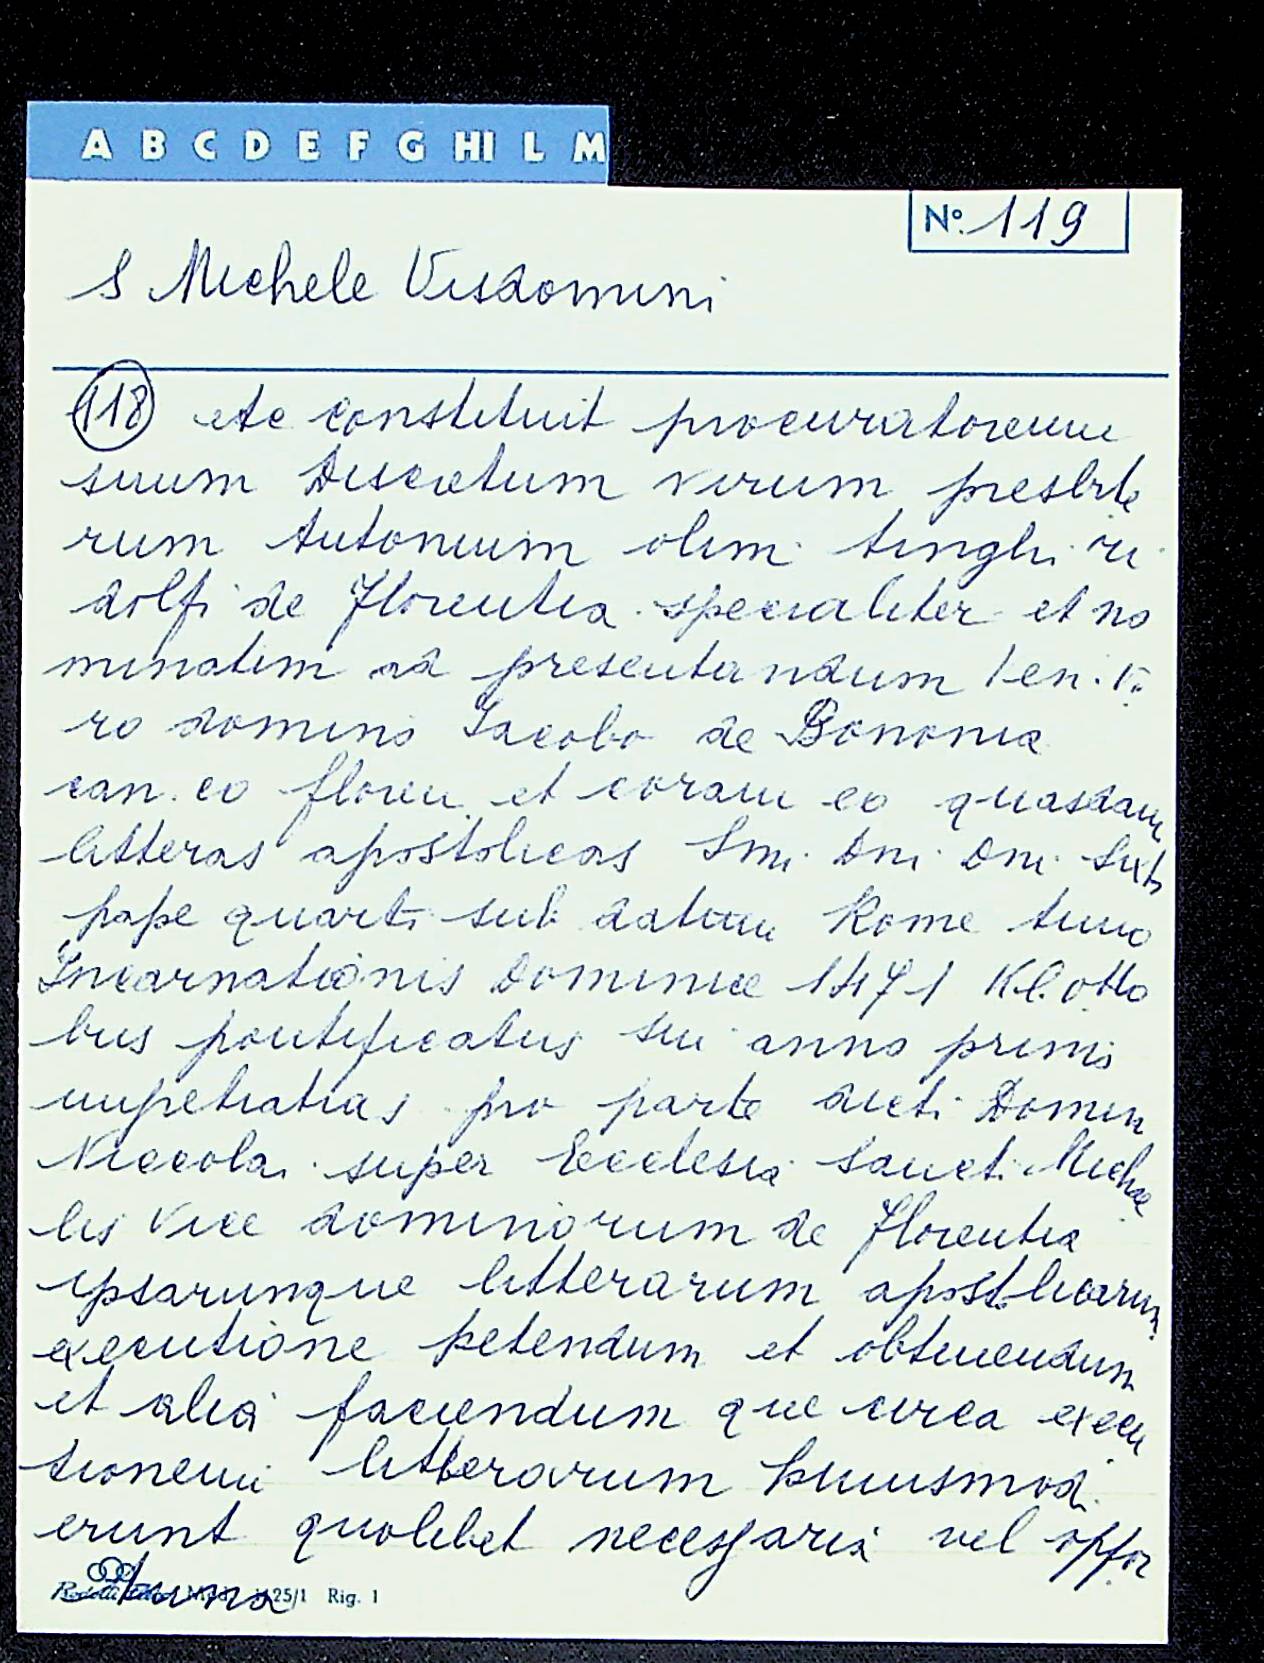 A B C D E F G HI L M
No. 119
S Michele Visdomini
118 etc constituit procuratorem
suum discretum virum presbite
rum Antonium olim tinghi ri
dolfi de Florentia specialiter et no
minatim ad presentandum Ven. Vi
ro domino Iacobo de Bononia
can. co floren et coram eo quasdam
litteras apostolicas Smi. Dni. Dni. Sixti
pape quarti sub datum Rome anno
Incarnationis Dominice 1471 Kl. otto
bus pontificatus sui anno primo
impetratas pro parte dicti Domin
Niccolai super Ecclesia Sancti Michae
lis Vice dominorum de Florentia
ipsarunque litterarum apostolicarum
executione petendum et obtinendum
et alia faciendum que circa execu
tionem litterarum huiusmodi
erunt quolibet necessaria vel oppor
tuna
25/1 Rig. 1